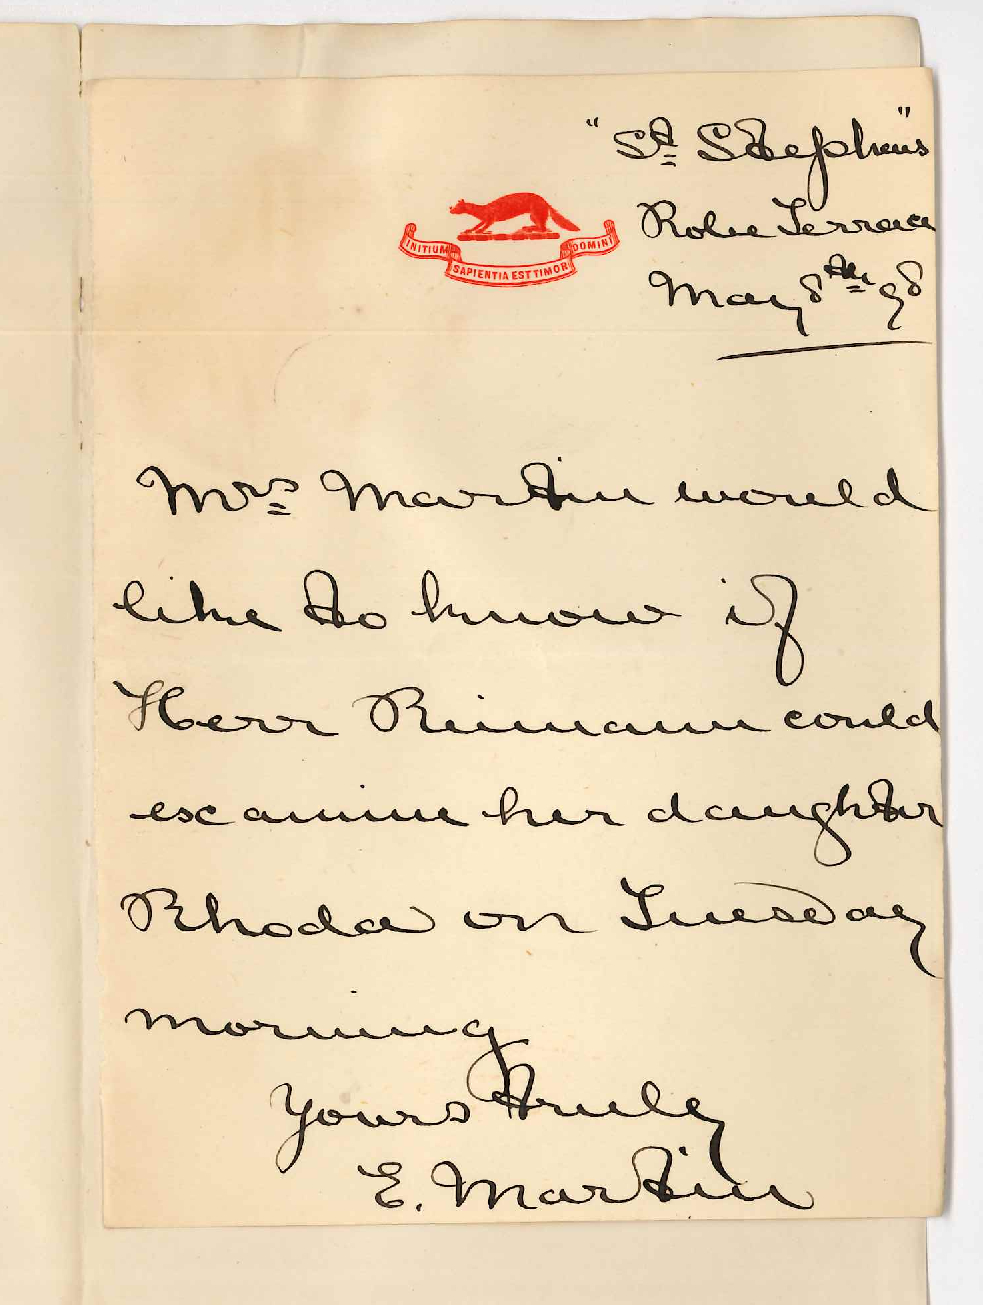 "St Stephens"
Robe Terrace
May 8th 98
INITIUM SAPIENTIA EST TIMOR DOMINI
Mrs Martin would
like to know if
Herr Reimann could
examine her daughter
Rhoda on Tuesday
morning
Yours truly
E. Martin